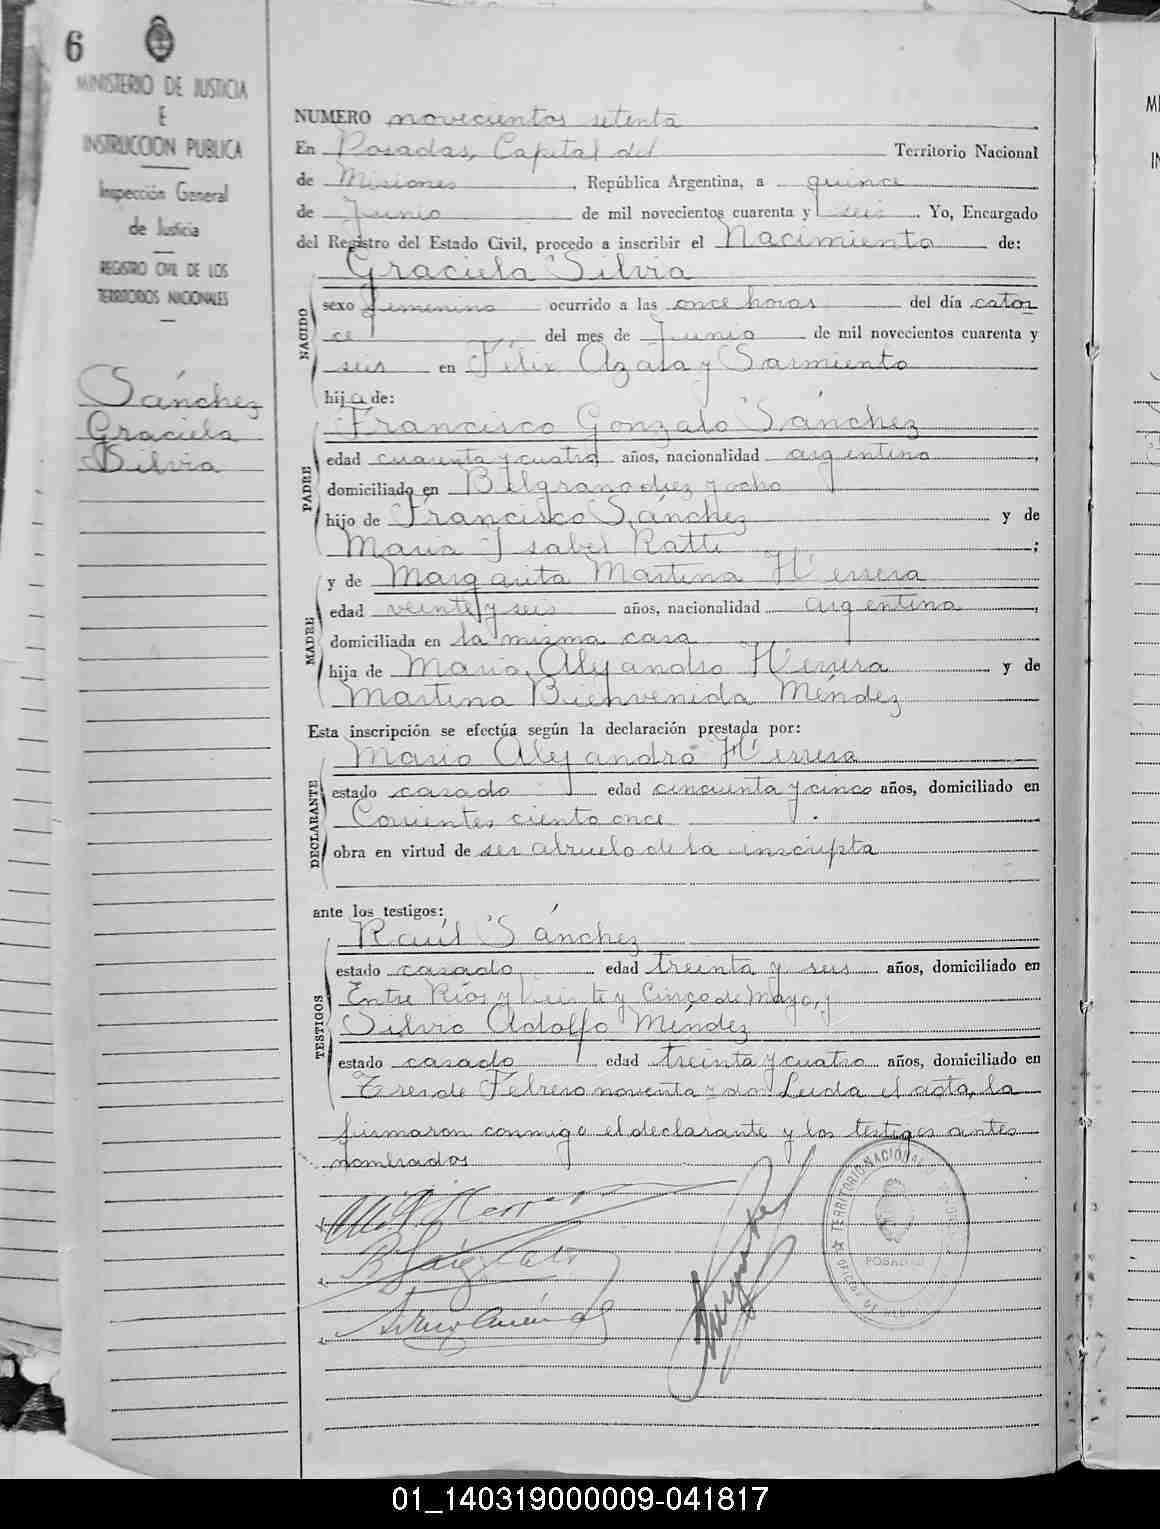 6
MINISTERIO DE JUSTICIA
E
INSTRUCCION PUBLICA
Inspección General
de Justicia
REGISTRO CIVIL DE LOS
TERRITORIOS NACIONALES
Sánchez
Graciela
Silvia
NUMERO novecientos setenta
En Posadas, Capital del Territorio Nacional
de Misiones, República Argentina, a quince
de Junio de mil novecientos cuarenta y seis. Yo, Encargado
del Registro del Estado Civil, procedo a inscribir el Nacimiento de:
Graciela Silvia
NACIDO
sexo femenino ocurrido a las once horas del día cator
ce del mes de Junio de mil novecientos cuarenta y
seis en Félix Azara y Sarmiento
hija de:
Francisco Gonzalo Sánchez
PADRE
edad cuarenta y cuatro años, nacionalidad argentino,
domiciliado en Belgrano diez y ocho
hijo de Francisco Sánchez y de
María Isabel Ratti;
y de Margarita Martina Herrera
MADRE
edad veinte y seis años, nacionalidad argentina,
domiciliada en la misma casa
hija de Mario Alejandro Herrera y de
Martina Bienvenida Méndez
Esta inscripción se efectúa según la declaración prestada por:
Mario Alejandro Herrera
DECLARANTE
estado casado edad cincuenta y cinco años, domiciliado en
Corrientes ciento once
obra en virtud de ser abuelo de la inscripta
ante los testigos:
Raúl Sánchez
TESTIGOS
estado casado edad treinta y seis años, domiciliado en
Entre Ríos y Veinte y Cinco de Mayo, y
Silvio Adolfo Méndez
estado casado edad treinta y cuatro años, domiciliado en
Tres de Febrero noventa y dos. Leída el acta, la
firmaron conmigo el declarante y los testigos antes
nombrados
TERRITORIO NACIONAL
POSADAS
01_140319000009-041817